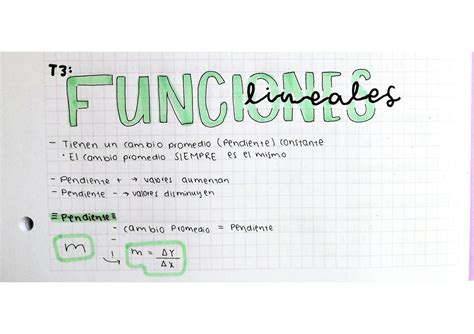 T3: FUNCIONES lineales
- Tienen un cambio promedio (pendiente) constante
· El cambio promedio SIEMPRE es el mismo
- Pendiente + → valores aumentan
- Pendiente - → valores disminuyen
≡ Pendiente ≡
- cambio promedio = pendiente
m
- m = ΔY/ΔX